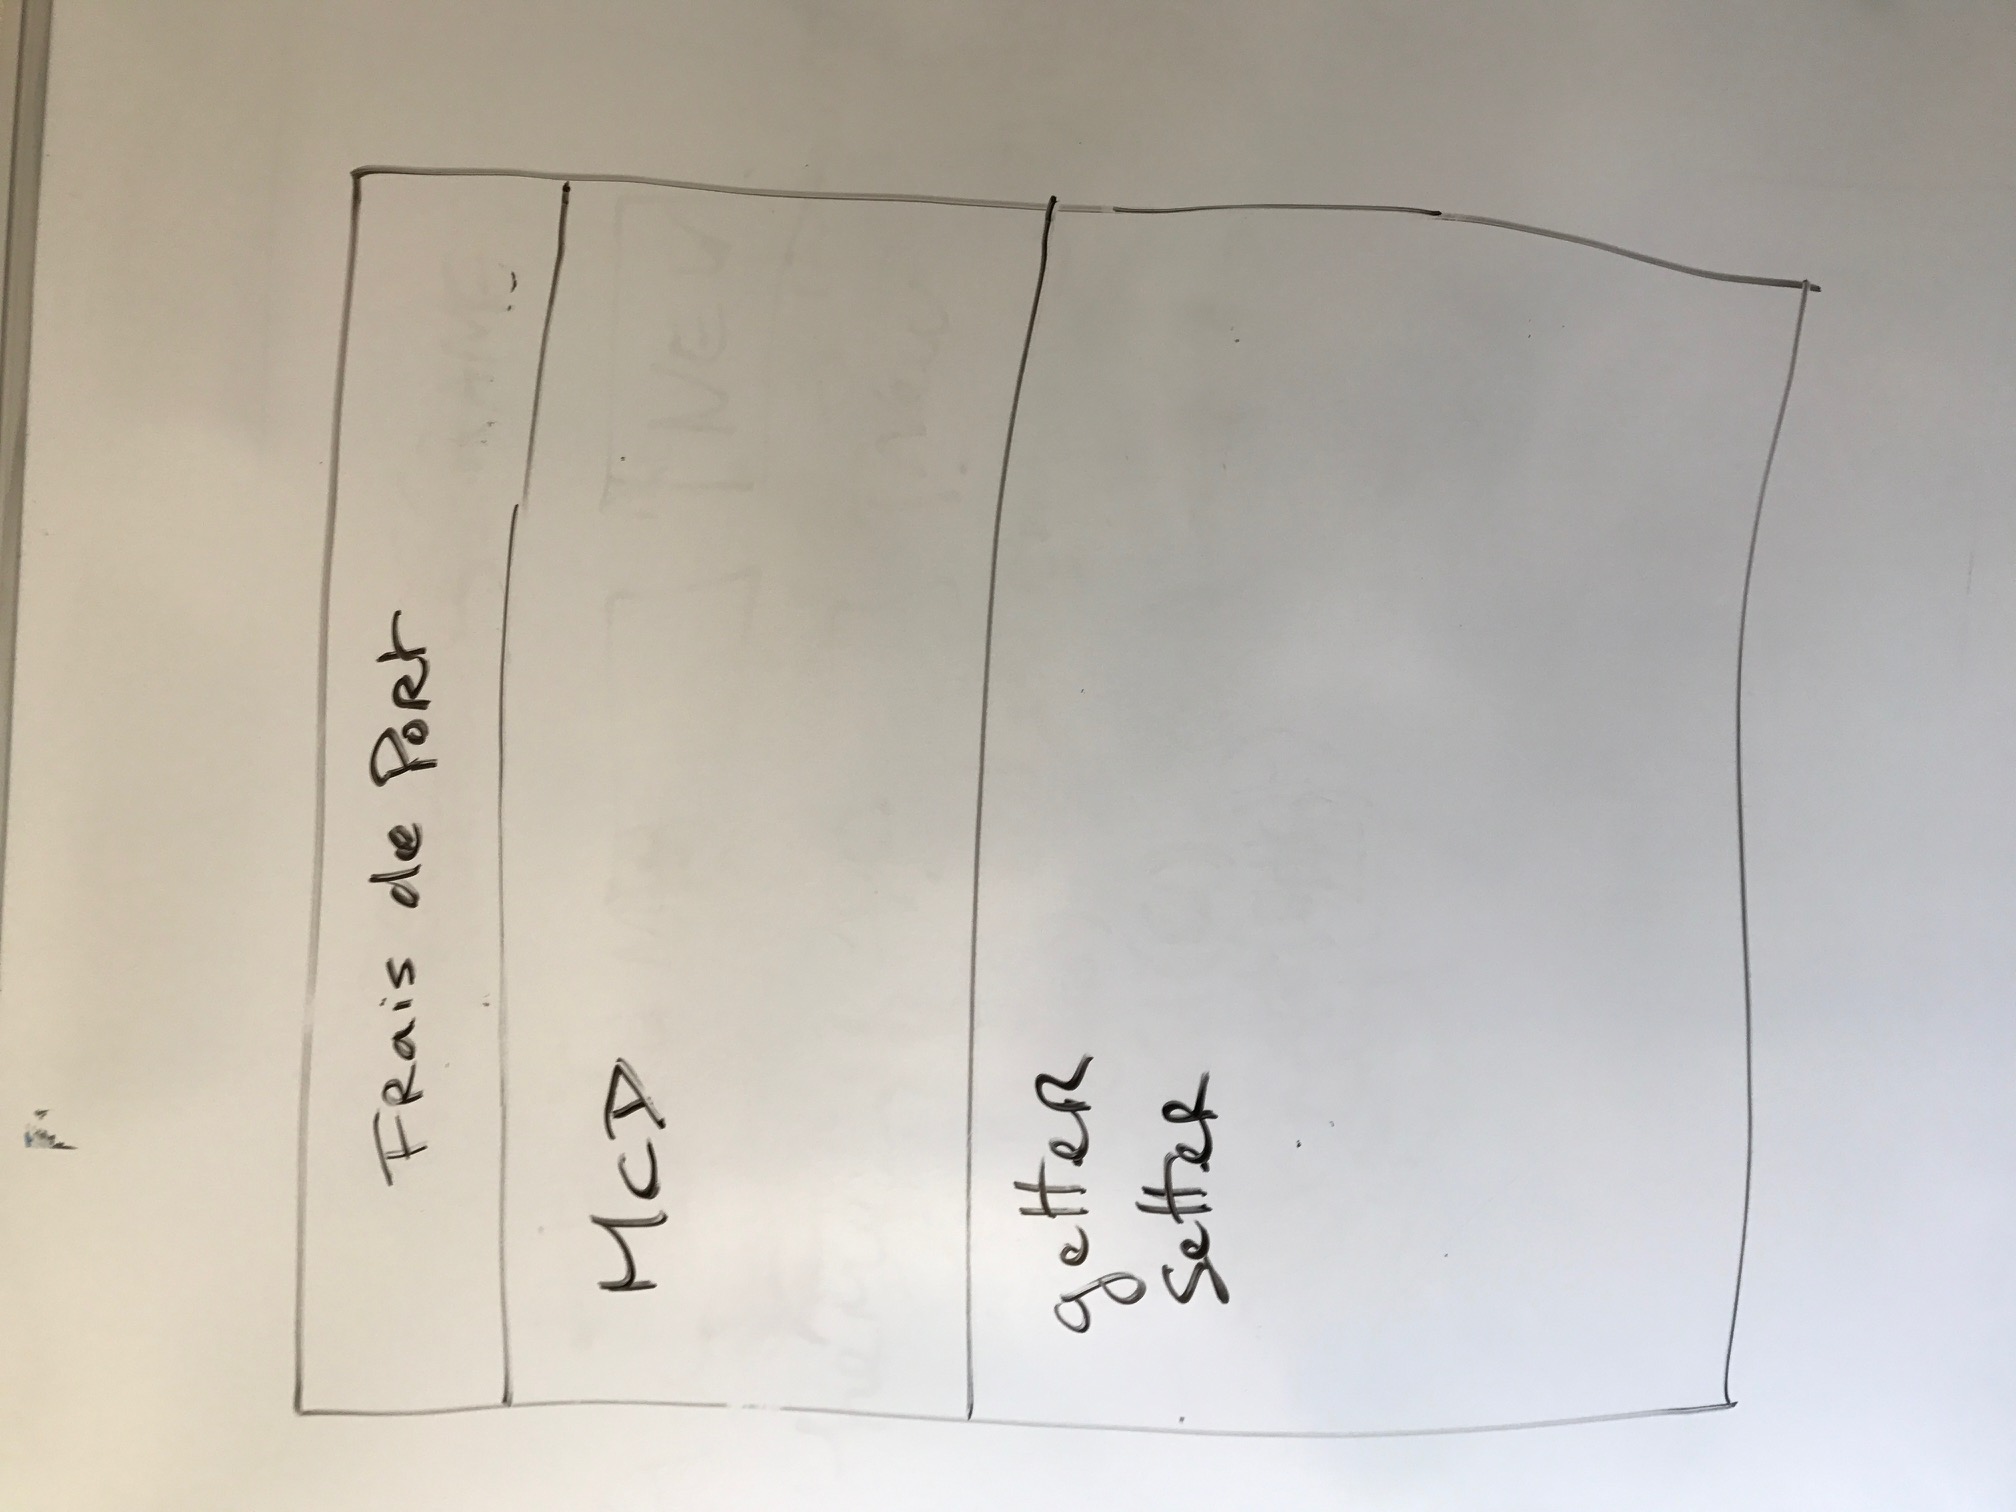 Frais de Port
MCD
getter
setter
NEW